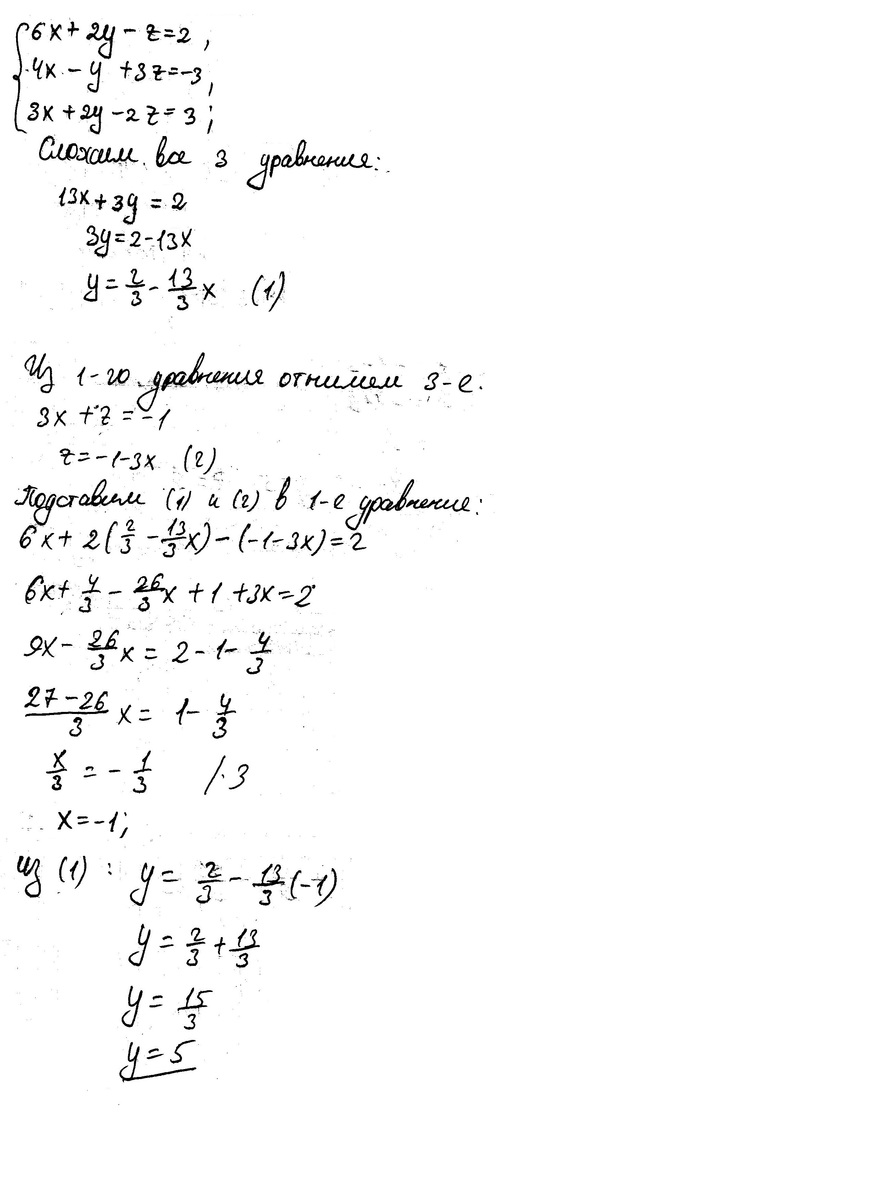 6x + 2y - z = 2 ,
4x - y + 3z = -3 ,
3x + 2y - 2z = 3 ;
Сложим все 3 уравнения:
13x + 3y = 2
3y = 2 - 13x
y = 2/3 - 13/3 x (1)
Из 1-го уравнения отнимем 3-е.
3x + z = -1
z = -1 - 3x (2)
Подставим (1) и (2) в 1-е уравнение:
6x + 2(2/3 - 13/3 x) - (-1 - 3x) = 2
6x + 4/3 - 26/3 x + 1 + 3x = 2
9x - 26/3 x = 2 - 1 - 4/3
27 - 26/3 x = 1 - 4/3
x/3 = - 1/3 /·3
x = -1;
Из (1) : y = 2/3 - 13/3 (-1)
y = 2/3 + 13/3
y = 15/3
y = 5